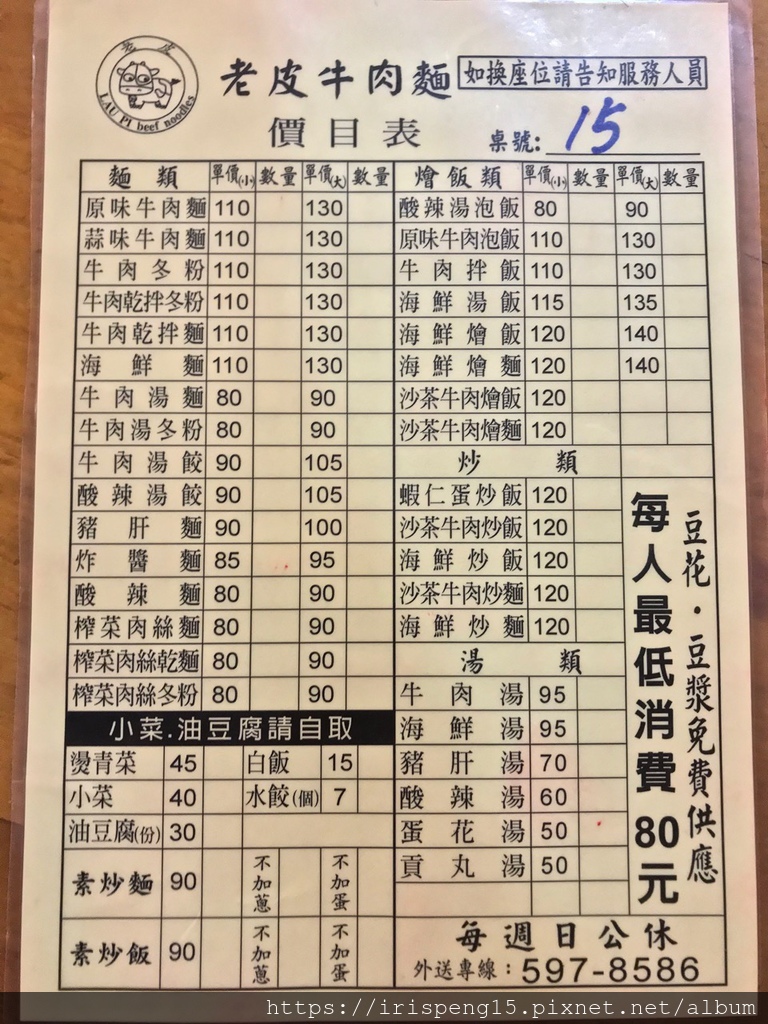 老皮
LAU PI beef noodles
老皮牛肉麵
如換座位請告知服務人員
價目表
桌號: 15
麵類 單價(小) 數量 單價(大) 數量
原味牛肉麵 110 130
蒜味牛肉麵 110 130
牛肉冬粉 110 130
牛肉乾拌冬粉 110 130
牛肉乾拌麵 110 130
海鮮麵 110 130
牛肉湯麵 80 90
牛肉湯冬粉 80 90
牛肉湯餃 90 105
酸辣湯餃 90 105
豬肝麵 90 100
炸醬麵 85 95
酸辣麵 80 90
榨菜肉絲麵 80 90
榨菜肉絲乾麵 80 90
榨菜肉絲冬粉 80 90
小菜.油豆腐請自取
燙青菜 45 白飯 15
小菜 40 水餃(個) 7
油豆腐(份) 30
素炒麵 90 不加蔥 不加蛋
素炒飯 90 不加蔥 不加蛋
燴飯類 單價(小) 數量 單價(大) 數量
酸辣湯泡飯 80 90
原味牛肉泡飯 110 130
牛肉拌飯 110 130
海鮮湯飯 115 135
海鮮燴飯 120 140
海鮮燴麵 120 140
沙茶牛肉燴飯 120
沙茶牛肉燴麵 120
炒類
蝦仁蛋炒飯 120
沙茶牛肉炒飯 120
海鮮炒飯 120
沙茶牛肉炒麵 120
海鮮炒麵 120
湯類
牛肉湯 95
海鮮湯 95
豬肝湯 70
酸辣湯 60
蛋花湯 50
貢丸湯 50
豆花・豆漿免費供應
每人最低消費80元
每週日公休
外送專線：597-8586
https://irispeng15.pixnet.net/album